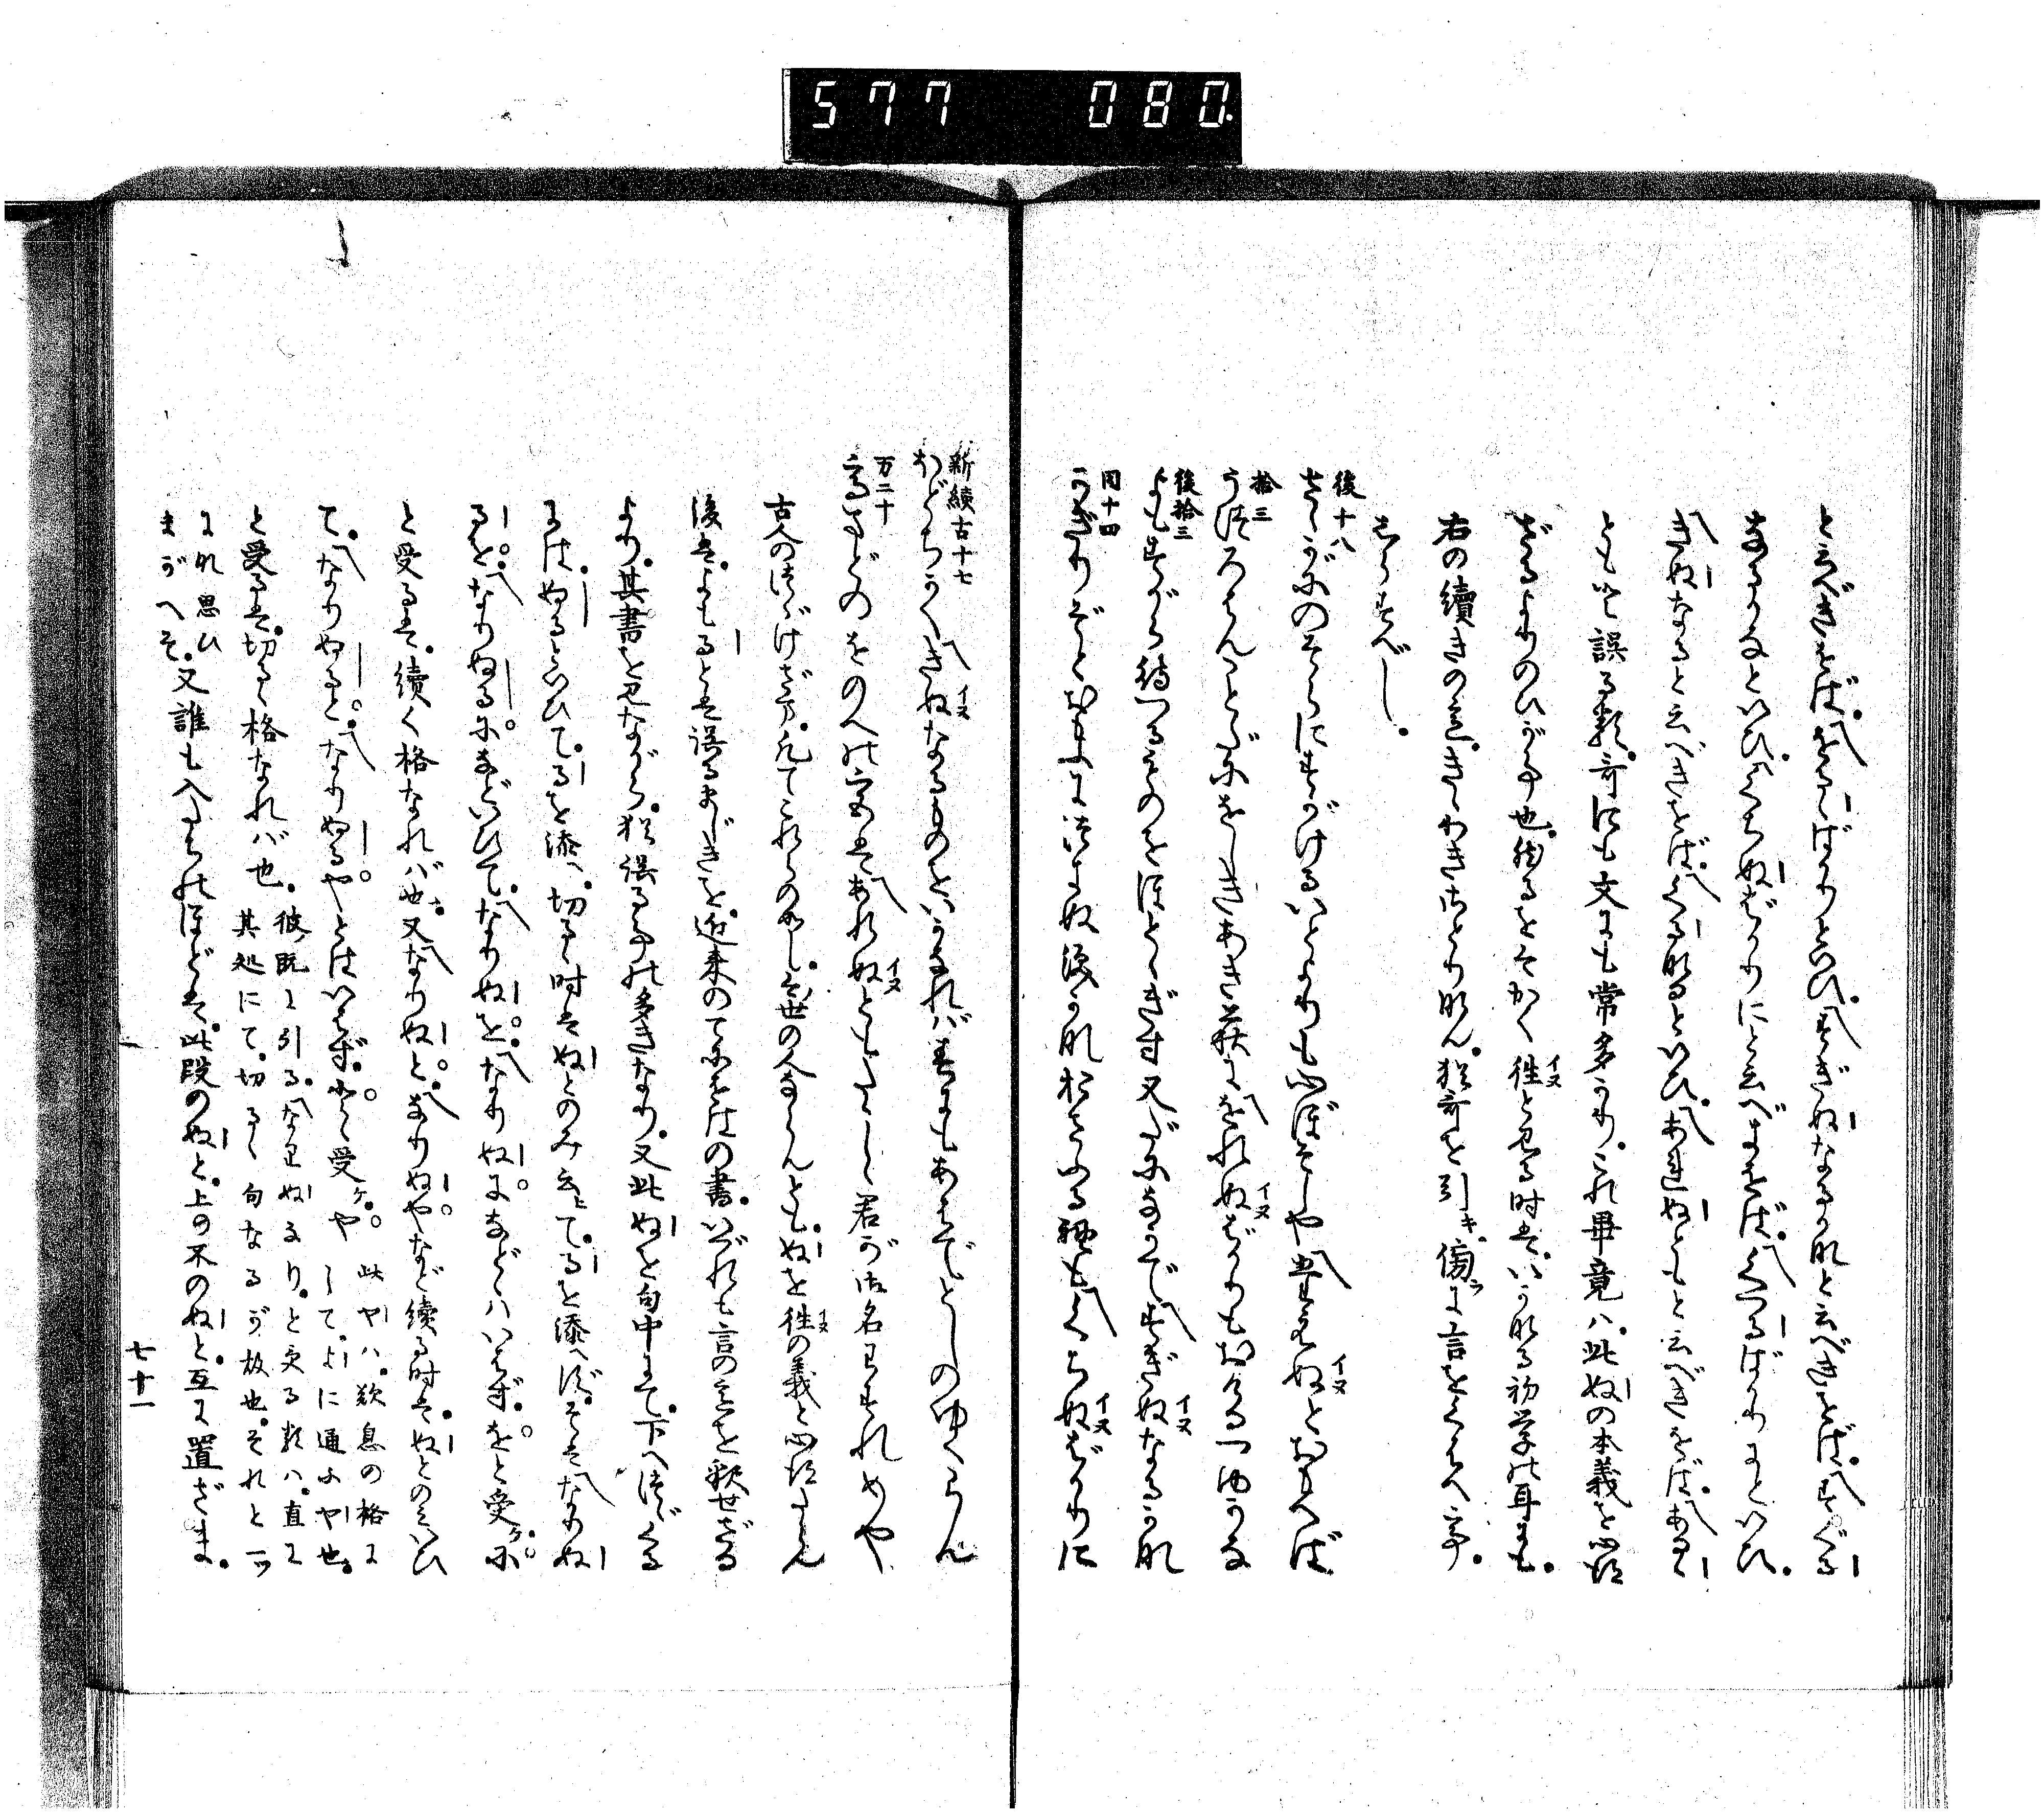 577 080
と云べきをば。をるゝばかりといひ。すぎぬなるかなと云べきをば。すぐる
なるかなといひ。くちぬばかりにと云べきをば。くつるばかりにといひ。
きぬなると云べきをば。くるなるといひ。あれぬともと云べきをば。あるゝ
ともと誤る類。哥にも文にも常多かり。これ畢竟ハ。此ぬの本義を心得
ざるよりのひがヿ也。然るをそかく往と見る時は。いかなる初学の耳にも。
右の續きの意。きゝわきさとりなん。猶哥を引キ。傍ラに言をくはへ
しらすべし。
後十八
さゝがにのそらにすがけるいとよりも心ぼそしやたえぬとおもへば
拾三
うつろはんことだにをしきあき萩にをれぬばかりもおける露かな
後拾三
よもすがら待つるものをほとゝぎす又だになかですぎぬなるかな
同十四
かぎりぞとおもふにつきぬ涙かなおさふる袖もくちぬばかりに
新續古十七
ほどちかくきぬなるものをいかなれば春にもあはでとしのゆくらん
万二十
高まどのをのへの宮はあれぬともたゝしゝ君が御名わすれめや
古人のつゞけざま。凡てこれらの如し。今世の人ならんとも。ぬを往の義と心得たらん
後は。よもるとは誤るまじきを。近来のてにをはの書。いづれも言の意を釈せざる
より。其書を見ながら。猶誤る事の多きなり。又此ぬを句中にて。下へつゞくる
には。ぬるといひて。るを添へ。切るゝ時はぬとのみ云ヒて。るを添へず。そはなりぬ
るを。なりぬるになどいひて。なりぬを。なりぬになどゝハいはず。をと受ケ。に
と受るは。續く格なれバ也。又なりぬと。なりぬやなど續る時は。ぬとのミいひ
て。なりぬると。なりぬるやとはいはず。とゝ受ケ。や 此やハ。歎息の格に
して。よに通ふや也。
と受るは。切るゝ格なれバ也。彼既に引る。なりぬるり。と交る類ハ。直に
其処にて。切るゝ句なるが故也。それと一ツ
にな思ひ
まがへそ。又誰も入たちのほどは。此段のぬと。上の不のぬと。互に置ざま。
七十一